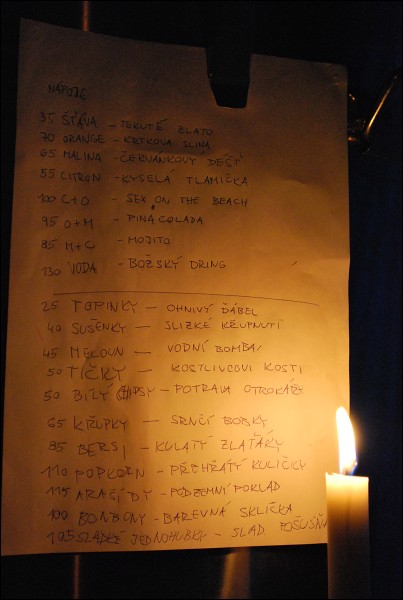 NÁPOJE
35 ŠŤÁVA - TEKUTÉ ZLATO
70 ORANGE - KRTKOVA SLINA
65 MALINA - ČERVÁNKOVÝ DÉŠŤ
55 CITRON - KYSELÁ TLAMIČKA
100 C+O - SEX ON THE BEACH
95 O+M - PINA COLADA
85 M+C - MOJITO
130 VODA - BOŽSKÝ DRING
25 TOPINKY - OHNIVÝ ĎÁBEL
40 SUŠENKY - SLIZKÉ KŘUPNUTÍ
45 MELOUN - VODNÍ BOMBA
50 TYČKY - KOSTLIVCOVI KOSTI
50 BÍLÝ CHIPSY - POTRAVA OTROKÁŘE
65 KŘUPKY - SRNČÍ BOBKY
85 BERSI - KULATÝ ZLAŤÁKY
110 POPKORN - PŘEHŘÁTÝ KULIČKY
115 ARAŠÍDY - PODZEMNÍ POKLAD
100 BONBONY - BAREVNÁ SKLÍČKA
105 SLADKÉ JEDNOHUBKY - SLAD